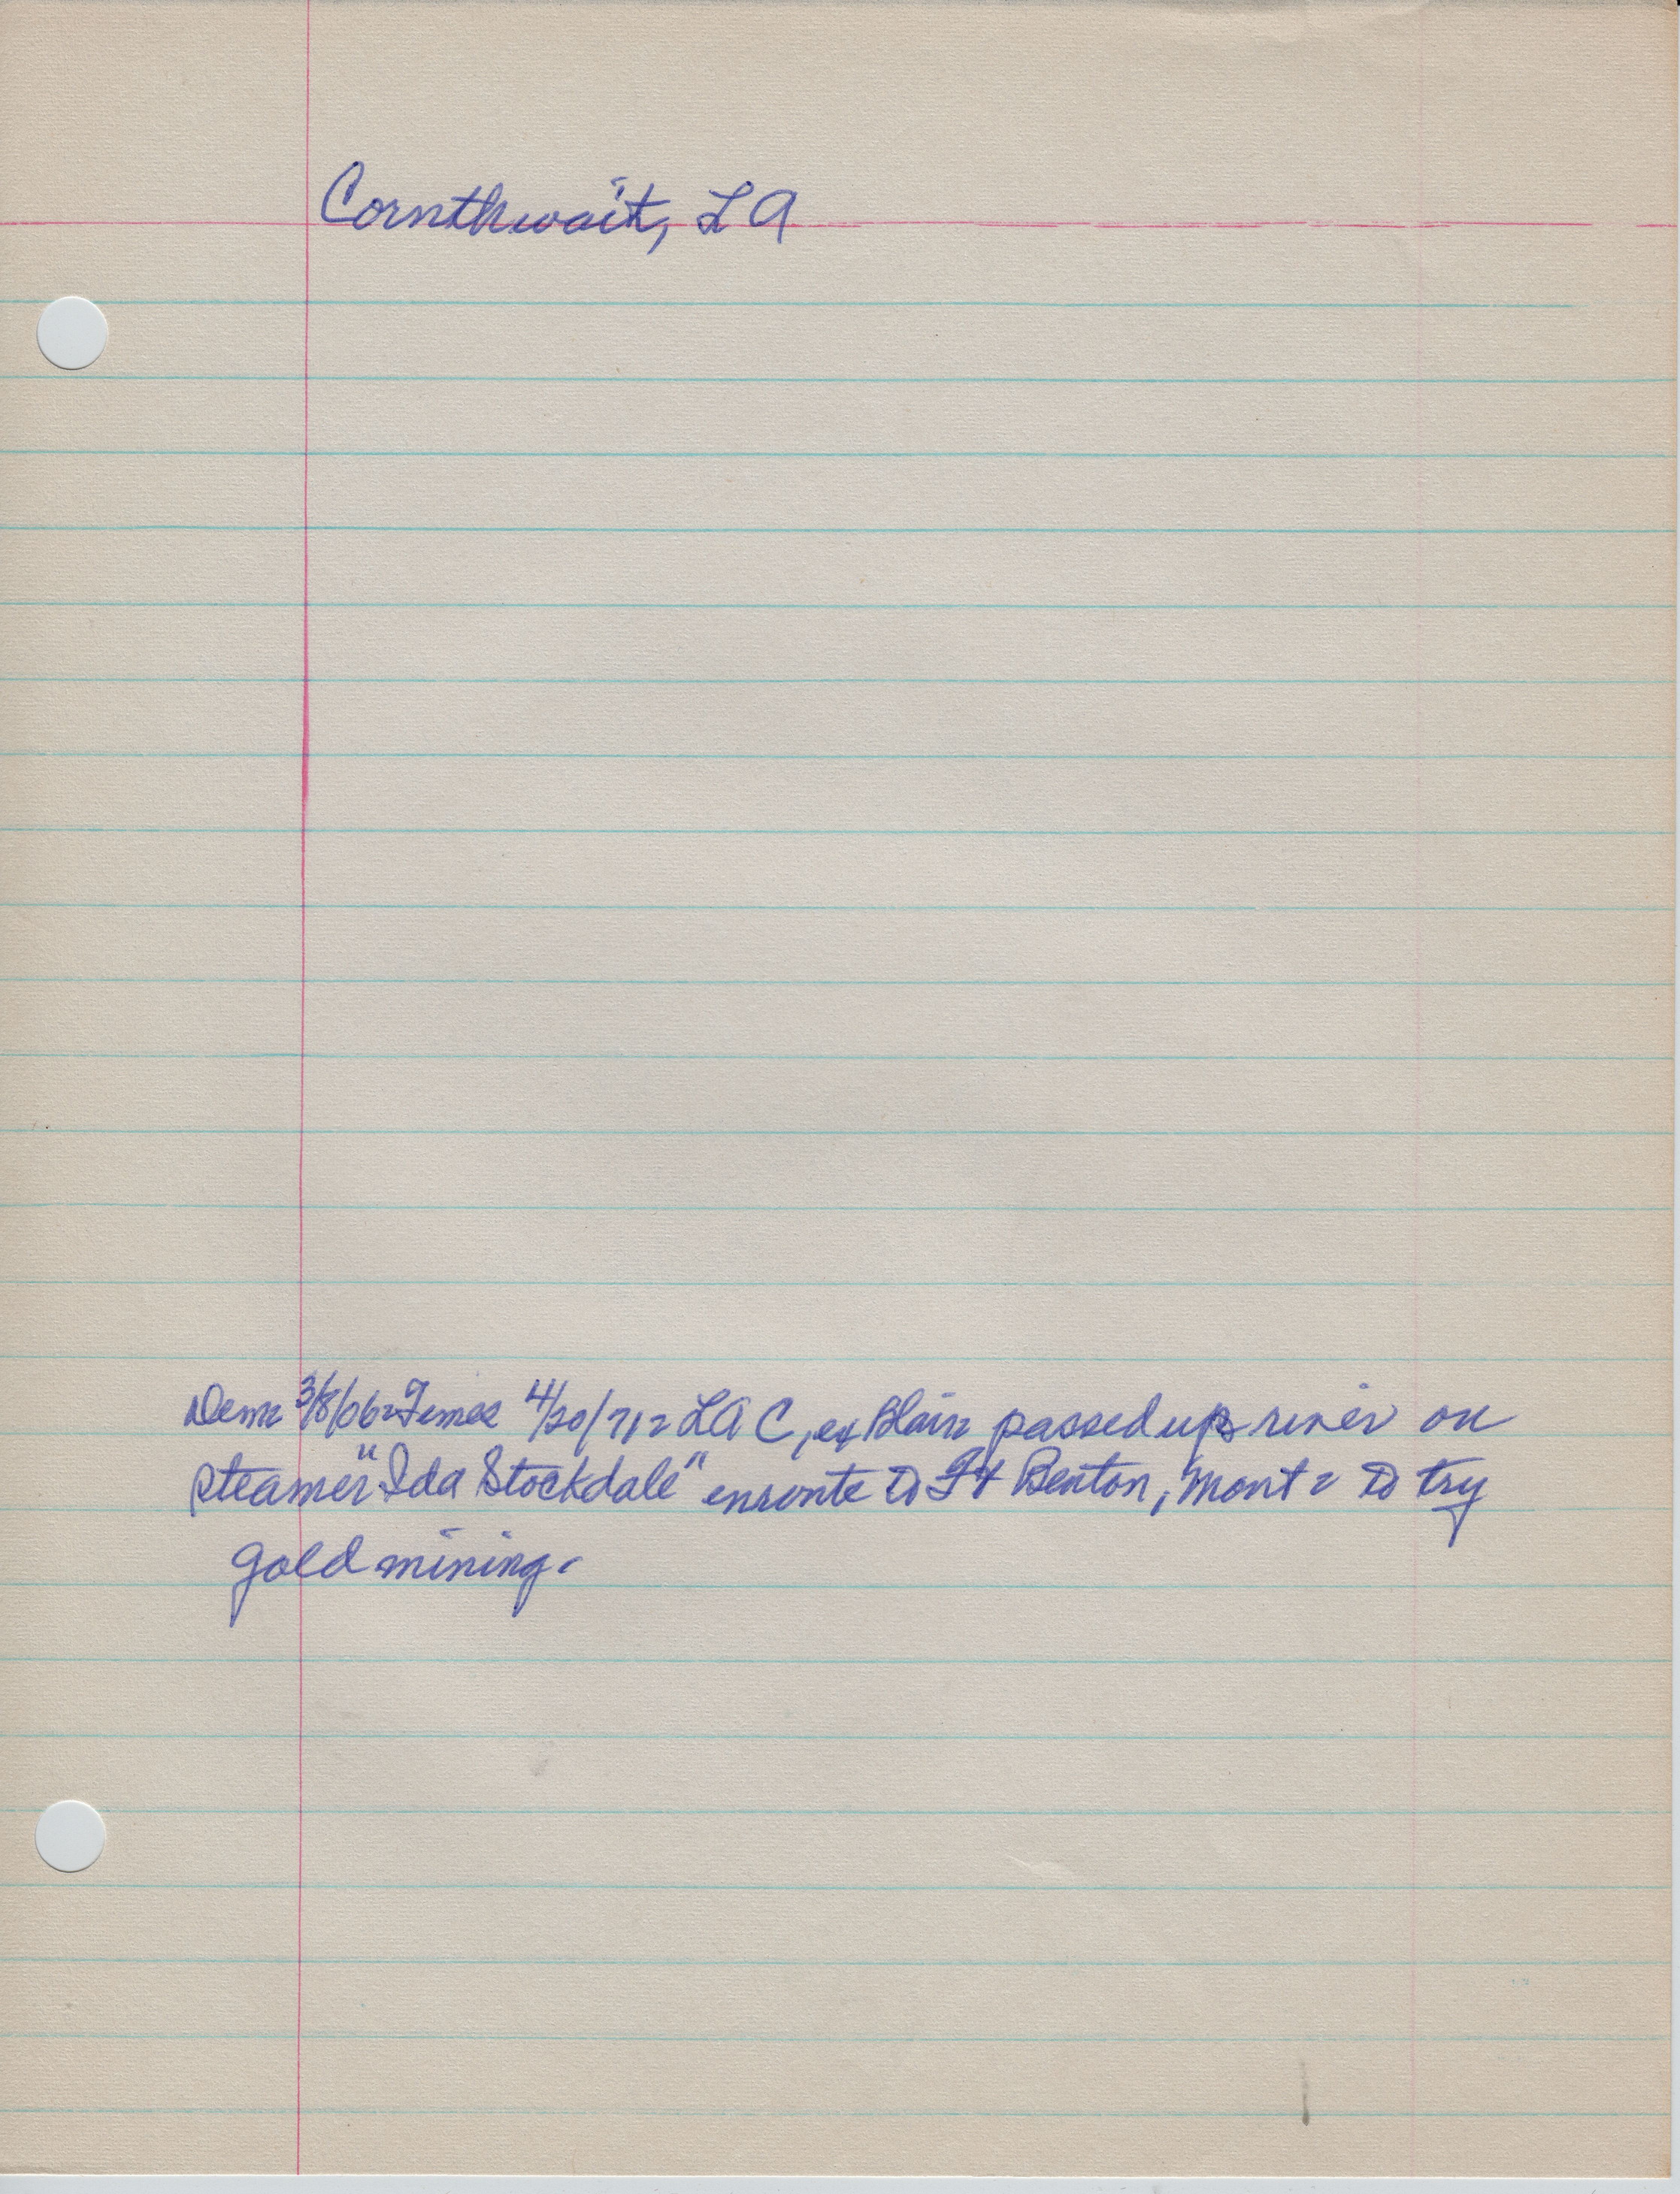 Cornthwait, L A
Dem 3/8/66 = Times 4/20/71 = L A C, ex Blair passed up river on
steamer "Ida Stockdale" enroute to Ft Benton, Mont = to try
gold mining.